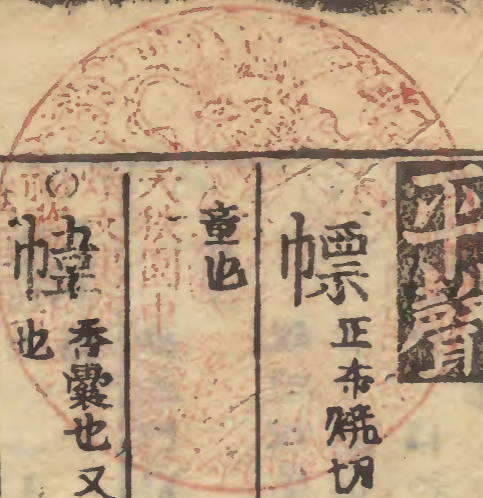 平聲
幖 正布燒切
童也
〇幃 香囊也又
也